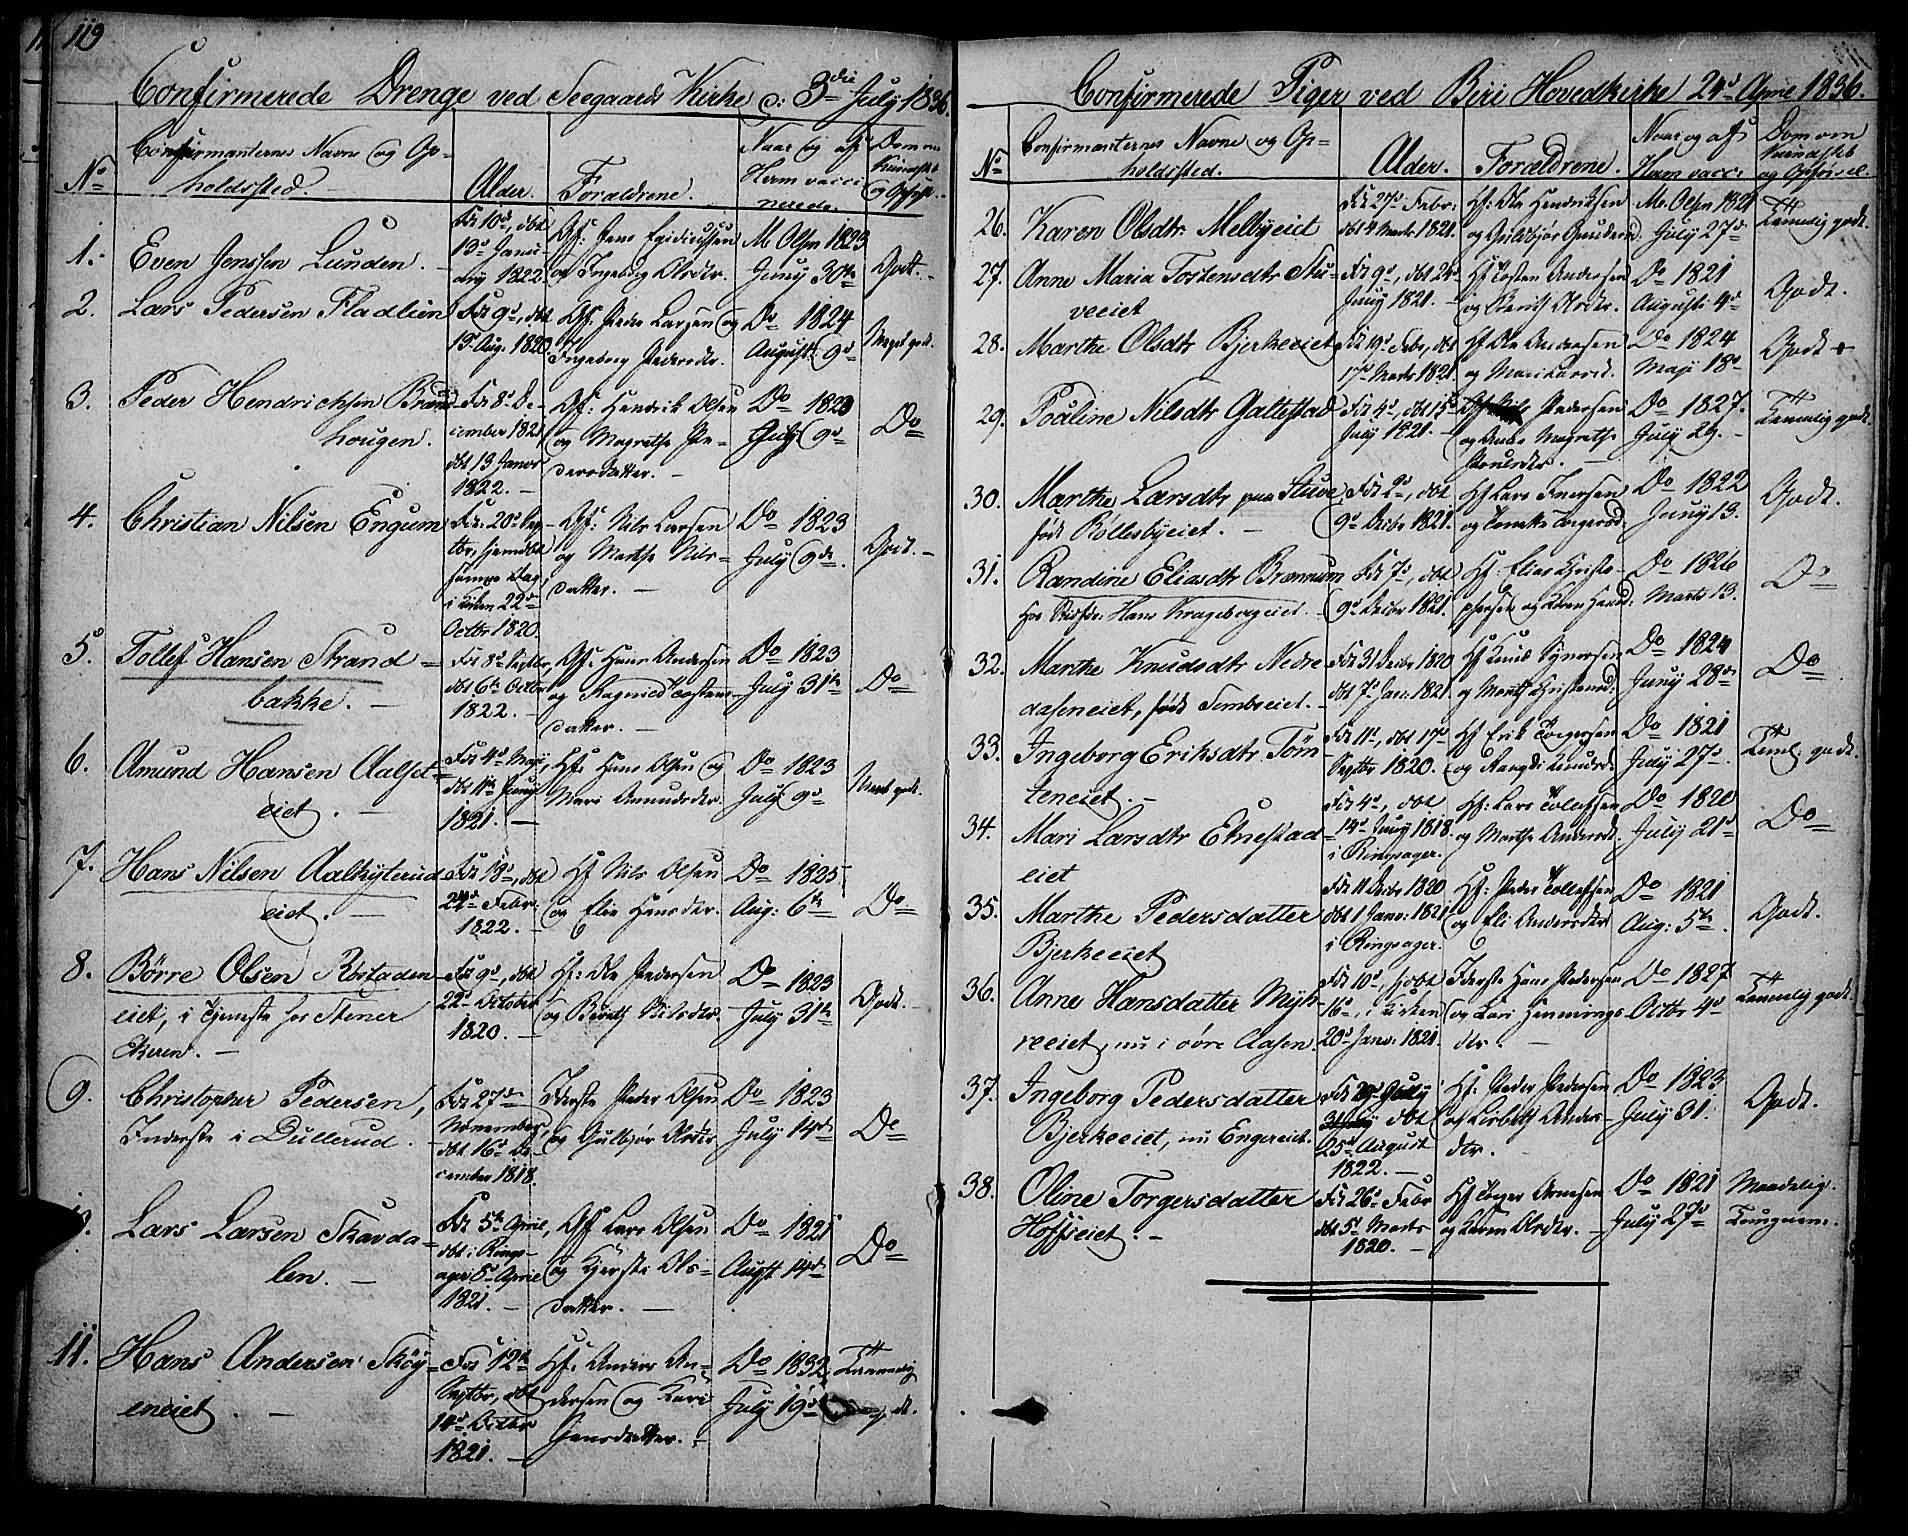 110
Confirmerede Drenge ved Seegaards Kirke d: 3die July 1836.
No
Confirmanternes Navne og Op-
holdssted.
Alder.
Forældrene.
Naar og af
Hvem vacci-
nerede.
Dom om
Kundskab
og Opførsel.
1.
Even Jenssen Lunden.
Fdt 10d, dbt
13d Janu-
ary 1822.
Gf. Jens Egidiussen
og Ingeborg Olsdtr.
M Olsn 1823
Juny 30te
Godt.
2.
Lars Pedersen Fladlien
Fdt 9d, dbt
13 Aug. 1820
Gf. Peder Larsen og
Ingeborg Pedersdtr.
Do 1824
August 9d
Meget godt.
3.
Peder Hendrichsen Brænd-
hougen.
Fdt 8d De-
cember 1821
dbt 13 Janr
1822.
Gf: Hendrik Olsen
og Magrethe Pe-
dersdatter.
Do 1823
July 9d
Do
4.
Christian Nilsen Engum
Fdt. 20d Sep-
tbr, hjemdbt
samme Dag,
i Kirken 22d
Octbr 1820.
Gf: Nils Larsen
og Marthe Nils-
datter.
Do 1823
July 9de.
Godt.
5.
Tollef Hansen Strand-
bakke.
Fdt 8d Septbr,
dbt 6te Octbr
1822.
Gf. Hans Andersen
og Ragnild Tostens-
datter.
Do 1823
July 31te
Do
6.
Amund Hansen Aalset-
eiet.
Fdt 4d Maji
dbt 11te Juny
1821.
Hf. Hans Olsen og
Mari Amundsdtr.
Do 1823
July 9d
Meget godt.
7.
Hans Nilsen Aalhyterud-
eiet.
Fdt 18d, dbt
24d Febr.
1822.
Hf Nils Olsen
og Elie Hansdtr.
Do 1825
Aug: 6te
Do
8.
Børre Olsen Røstaden-
eiet, i Tjeneste hos Stener
Keren.
Fdt 9d, dbt
22d October
1820.
Hf: Ole Pedersen
og Bereth Nilsdtr.
Do 1823
July 31te
Godt.
9.
Christopher Pedersen,
Inderste i Dullerud.
Fdt 27de
November,
dbt 16d De-
cember 1818.
Iderste Peder Olsen
og Gulbjør Olsdtr
Do 1823
July 14de
Do
Lars Larsen Skavda-
len.
Fdt 5te April,
dbt i Rings-
ager 8d April
1821.
Gf Lars Olsen
og Kjersti Ols-
datter.
Do 1821
Augst 14de
Do
11.
Hans Andersen Skøy-
eneiet.
Fdt 12te
Septbr, dbt
14d Octbr
1821.
Hf: Anders An-
dersen og Kari
Jensdatter.
Do 1832
July 19d
Temmelig
Confirmerede Piger ved Biri Hovedkirke 24d April 1836.
No
Confirmanternes Navne og Op-
holdssted.
Alder.
Forældrene.
Naar og af
Hvem vacci:
Dom om
Kundskab
og Opførsel.
26.
Karen Olsdtr Melbyeiet
Fdt 27d Febr:
dbt 4 Marts 1821.
Hf: Ole Hendriksen
og Gulbjør
M. Olsn 1821
July 27d
Temmelig godt.
27.
Anne Maria Tostensdtr Stu-
veeiet
Fdt 9d, dbt 24d
Juny 1821.
Hf Tosten Andersen
og Bereth Olsdtr.
Do 1821
August 4d
Godt.
28.
Marthe Olsdtr Bjerkeeiet
Fdt 19d Febr, dbt
17d Marts 1821.
Hf Ole Andersen
og Mari Larsd.
Do 1824
Maji 18d
Godt
29.
Poaline Nilsdtr Galtestad
Fdt 4d, dbt 15d
July 1821.
Gf Nils Pedersen
og Anne Magrethe
Do 1827.
July 26.
Temmelig godt.
30.
Marthe Larsdtr paa Stuve
født Røllesbyeiet.
Fdt 2d, dbt
9d Decbr 1821.
Hf Lars Iversen
og
Do 1822
Juny 13.
Godt.
31.
Randine Eliasdtr Brænnum
hos Stedfdr: Hans Krageborgeiet.
Fdt 7d, dbt
9d Decbr 1821.
Hf: Elias Christo-
phersen og Karen Hansd:
Do 1826
Marts 13.
Do
32.
Marthe Knudsdtr Nedre
aaseneiet, født Sembseiet.
Fdt 31 Decbr 1820
dbt 7d Jan: 1821.
Hf Knud Synersen
og Marith Christensd:
Do 1824
Juny 28de
Do
33.
Ingeborg Eriksdtr Torn
teneiet.
Fdt 11d, dbt 17d
Septbr 1820.
Hf Erik Torgersen
og Rangdi Knudsd.
Do 1821
July 27d.
Teml godt.
34.
Mari Larsdtr Elnestad
eiet
Fdt 4d, dbt
14d Juny 1818.
i Ringsager.
Hf: Lars Tollefsen
og Marthe Andersd.
Do 1820
July 21d
Do
35.
Marthe Pedersdatter
Bjerkeeiet
Fdt 11 Decbr 1820
dbt 1 Janr: 1821
i Ringsager.
Hf: Peder Tollefsen
og Eli Andersdtr
Do 1821
Aug: 5te.
Godt.
36.
Anne Hansdatter Myh-
reeiet, nu i øvre Aasen.
Fdt 10d, hjdbt
16d, i Kirken
20d Janr: 1821.
Iderste Hans Pedersen
og Kari Hennings-
dtr.
Do 1827
Octbr 4d
Temmelig godt.
37.
Ingeborg Pedersdatter
Bjerkeeiet, nu Engereiet.
Fdt 29d July
dbt
25d August
1822.
Hf: Peder Pedersen
og Lisbeth Anders-
dtr.
Do 1823
July 31.
Godt.
38.
Oline Torgersdatter
Hoffseiet.
Fdt 26d Febr
dbt 5d Marts
1820.
Hf Torger Arnesen
og Karen Olsdtr.
Do 1821
July 27d
Maadelig.